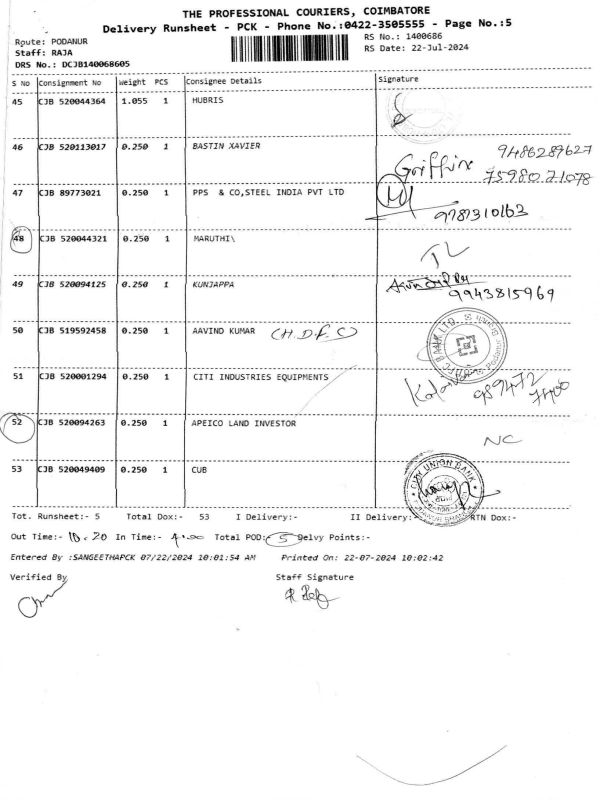 THE PROFESSIONAL COURIERS, COIMBATORE
Delivery Runsheet - PCK - Phone No.:0422-3505555 - Page No.:5
Route: PODANUR
RS No.: 1400686
Staff: RAJA
RS Date: 22-Jul-2024
DRS No.: DCJB140068605
S No Consignment No Weight PCS Consignee Details Signature
45 CJB 520044364 1.055 1 HUBRIS
46 CJB 520113017 0.250 1 BASTIN XAVIER Griffin 9486289627
75980 71078
47 CJB 89773021 0.250 1 PPS & CO,STEEL INDIA PVT LTD
9787310163
48 CJB 520044321 0.250 1 MARUTHI\ TL
49 CJB 520094125 0.250 1 KUNJAPPA
9943815969
50 CJB 519592458 0.250 1 AAVIND KUMAR (H.D.F.C)
51 CJB 520001294 0.250 1 CITI INDUSTRIES EQUIPMENTS
989472
7400
52 CJB 520094263 0.250 1 APEICO LAND INVESTOR NC
53 CJB 520049409 0.250 1 CUB
CITY UNION BANK
Tot. Runsheet:- 5 Total Dox:- 53 I Delivery:- II Delivery:- RTN Dox:-
Out Time:- 10.20 In Time:- 4.00 Total POD:- 5 Delvy Points:-
Entered By :SANGEETHAPCK 07/22/2024 10:01:54 AM Printed On: 22-07-2024 10:02:42
Verified By Staff Signature